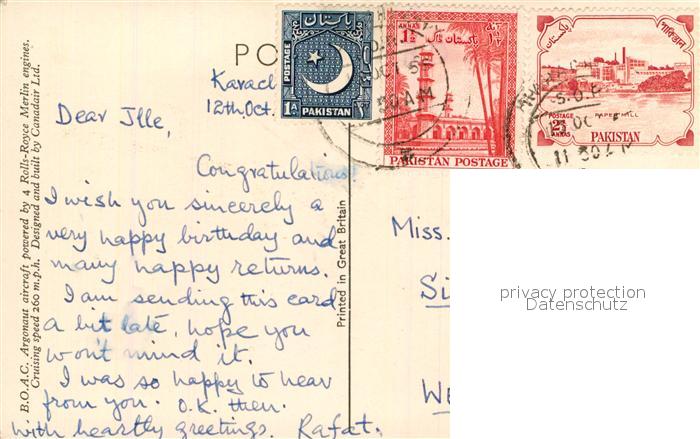 B.O.A.C. Argonaut aircraft powered by 4 Rolls-Royce Merlin engines.
Cruising speed 260 m.p.h. Designed and built by Canadair Ltd.
PO
Karachi
12th Oct.
Dear Jlle,
Congratulations!
I wish you sincerely a
very happy birthday and
many happy returns.
I am sending this card
a bit late, hope you
won't mind it.
I was so happy to hear
from you. O.K. then.
with heartly greetings. Rafat.
Printed in Great Britain
پاکستان
POSTAGE
1A
PAKISTAN
1½
پاکستان ڈاک
PAKISTAN POSTAGE
پاکستان
পাকিস্তান
PAPER MILL
POSTAGE
2½
ANNAS
PAKISTAN
Miss.
Si
privacy protection
Datenschutz
We